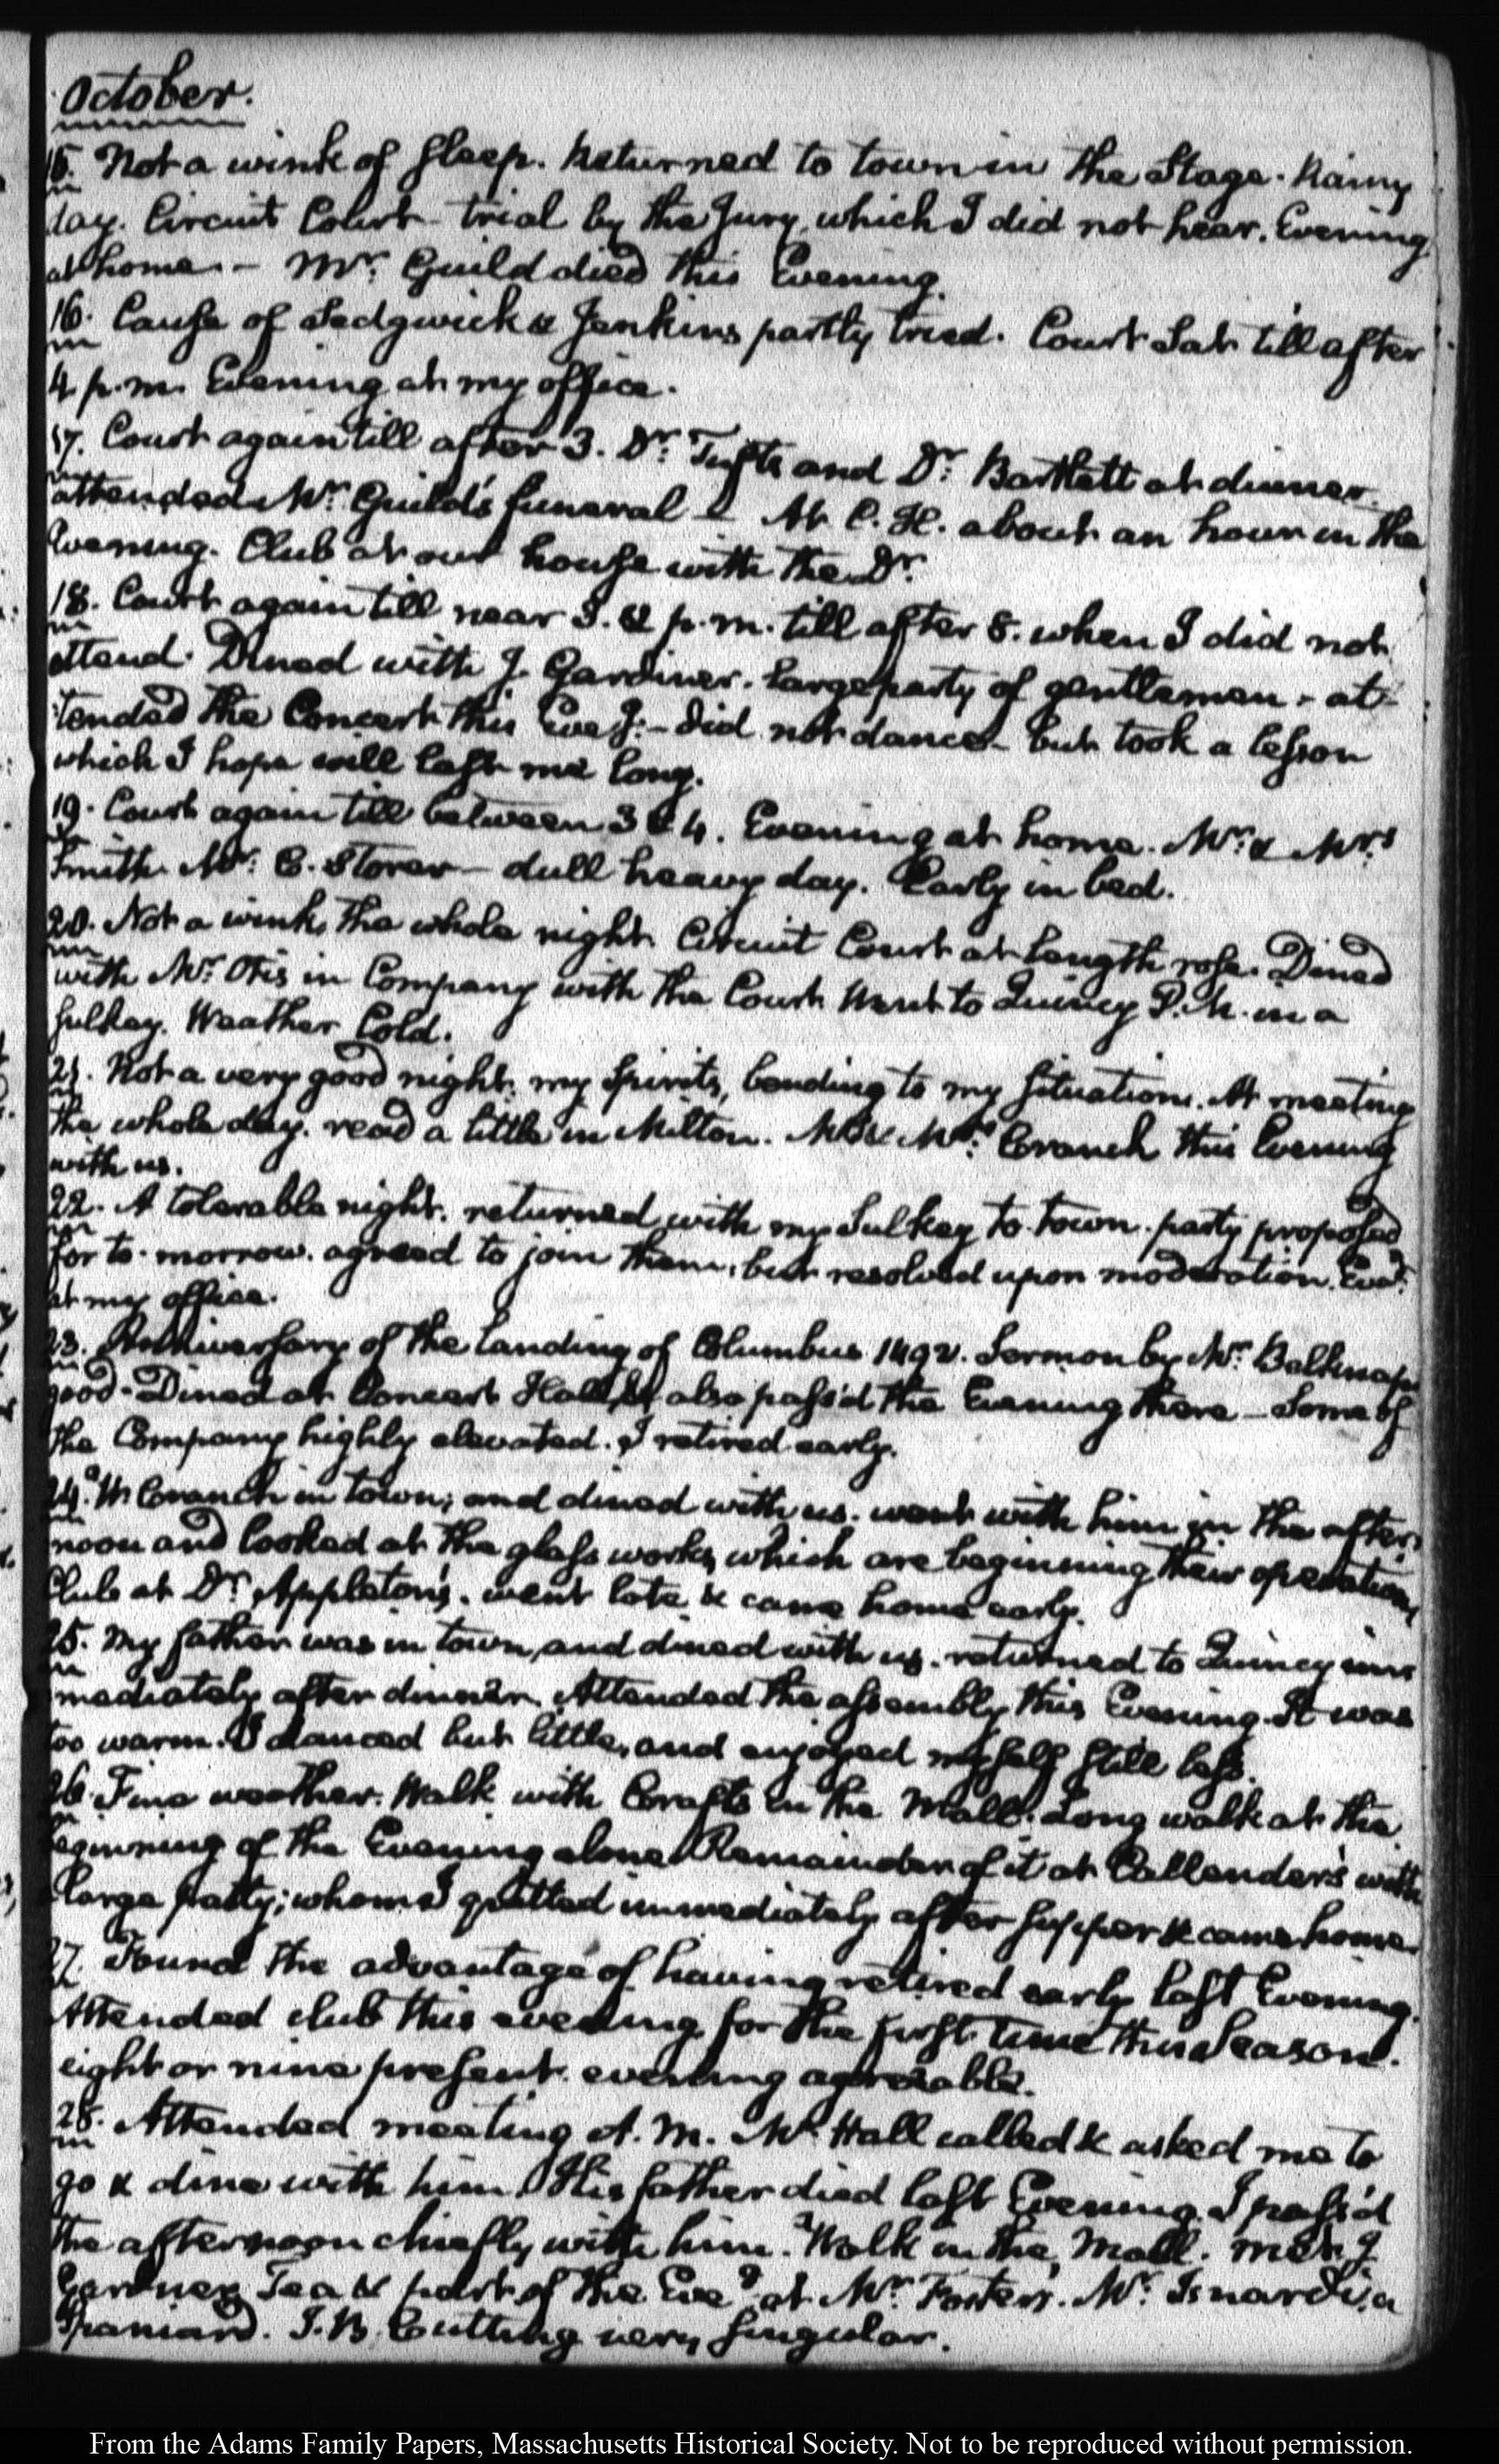 October.
15. Not a wink of sleep. Returned to town in the Stage. Rainy
day. Circuit Court trial by the Jury, which I did not hear. Evening
at home. — Mr. Guild died this Evening.
16. Cause of Sedgwick & Jenkins partly tried. Court Sat till after
4 p.m. Evening at my office.
17. Court again till after 3. Dr. Tufts and Dr. Bartlett at dinner.
attended Mr. Guild's funeral — At C. H. about an hour in the
Evening. Club at our house with the Dr.
18. Court again till near 3. & p.m. till after 8. when I did not
attend. Dined with J. Gardiner. large party of gentlemen - at-
tended the Concert this Eveg. — did not dance — but took a lesson
which I hope will last me long.
19. Court again till between 3 & 4. Evening at home. Mr. & Mrs.
Smith. Mr. C. Storer — dull heavy day. Early in bed.
20. Not a wink, the whole night. Circuit Court at length rose. Dined
with Mr. Otis in Company with the Court. Went to Quincy P.M. in a
sulkey. Weather Cold.
21. Not a very good night. my Spirits, bending to my situation. At meeting
the whole day. read a little in Milton. Mr. & Mrs. Cranch this Evening
with us.
22. A tolerable night. returned with my Sulkey to town. party proposed
for to-morrow. agreed to join them, but resolved upon moderation. Eveg.
at my office.
23. Anniversary of the landing of Columbus 1492. Sermon by Mr. Belknap
good. Dined at Concert Hall, & also pass'd the Evening there — Some of
the Company highly elevated. I retired early.
24. W. Cranch in town; and dined with us. went with him in the after-
noon and looked at the glass works, which are beginning their operations
Club at Dr. Appleton's. went late & came home early.
25. My father was in town, and dined with us. returned to Quincy im-
mediately after dinner. Attended the assembly this Evening. It was
too warm. I danced but little, and enjoyed myself still less.
26. Fine weather. Walk with Crafts in the Mall. Long walk at the
beginning of the Evening alone. Remainder of it at Callender's with
a large party; whom I quitted immediately after supper & came home.
27. Found the advantage of having retired early last Evening.
Attended club this evening for the first time this Season.
eight or nine present. evening agreeable.
28. Attended meeting A.M. Mr. Hall called & asked me to
go & dine with him. His father died last Evening. I pass'd
the afternoon chiefly with him. Walk in the Mall. met J
Gardner. Tea & part of the Eveg. at Mr. Foster's. Mr. Isnardi, a
Spaniard. J. B. Cutting very singular.
From the Adams Family Papers, Massachusetts Historical Society. Not to be reproduced without permission.